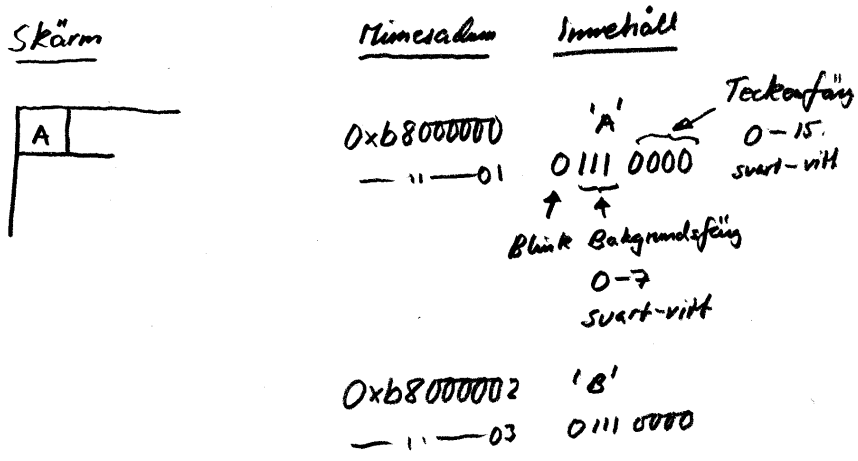 Skärm Minnesadress Innehåll
A 0xb8000000 'A' Teckenfärg
— " — 01 0 111 0000 0 – 15.
svart-vitt
Blink Bakgrundsfärg
0 – 7
svart-vitt
0xb8000002 'B'
— " — 03 0111 0000